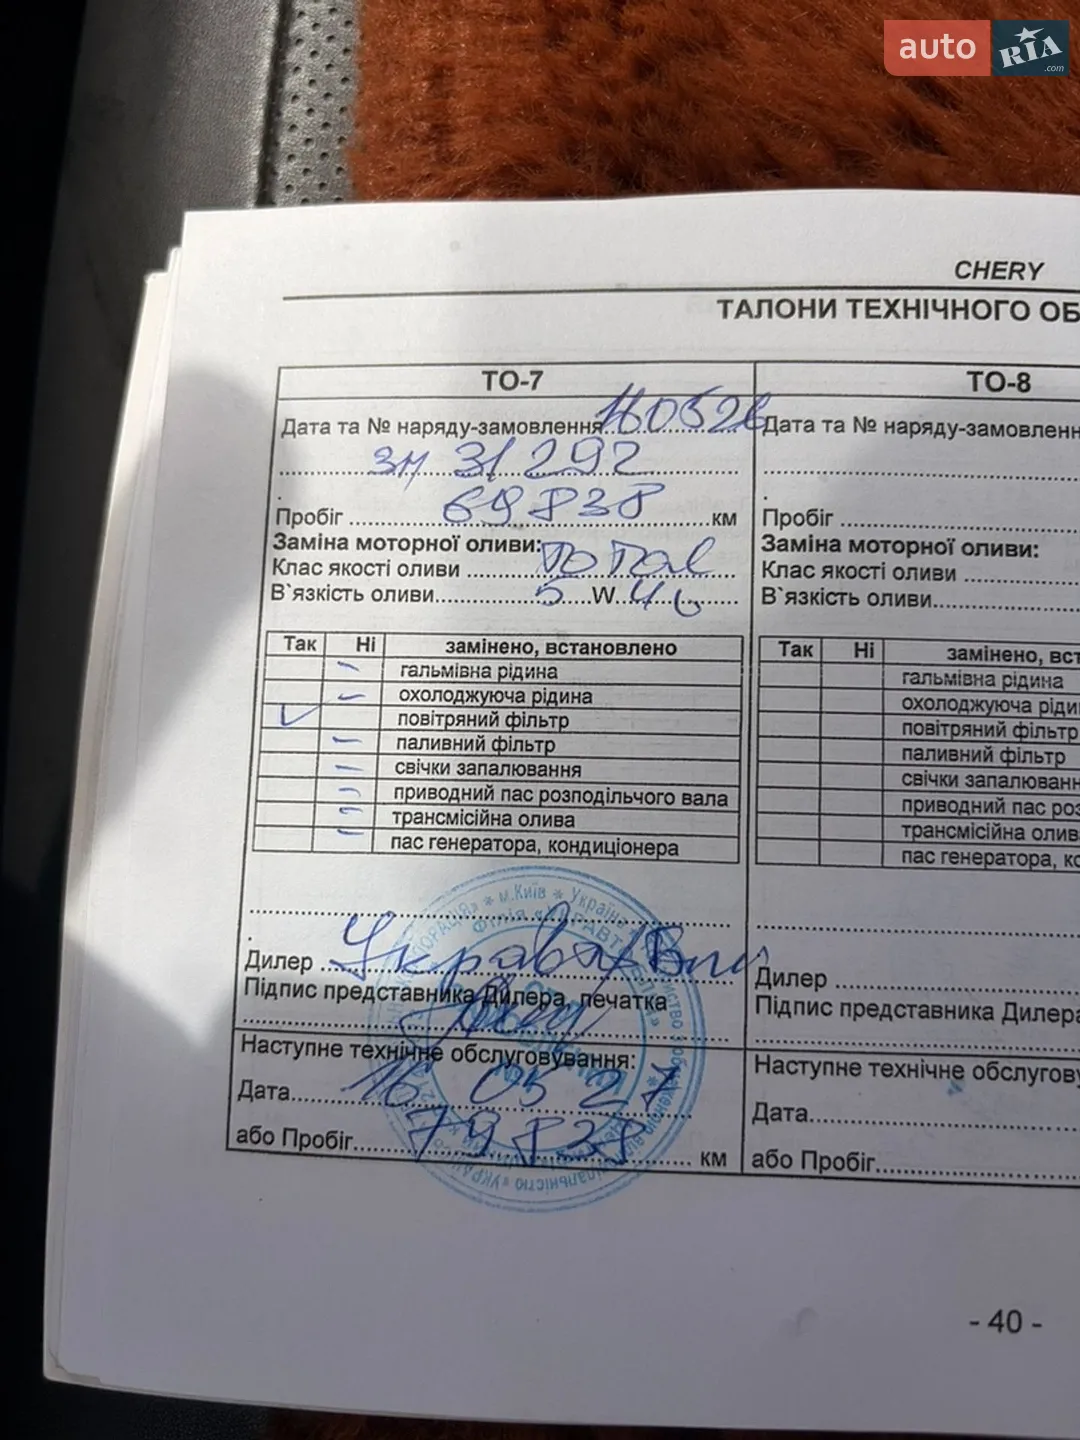 auto RIA.com
CHERY
ТАЛОНИ ТЕХНІЧНОГО ОБ
ТО-7
Дата та № наряду-замовлення
зн 31292
Пробіг 69838 км
Заміна моторної оливи:
Клас якості оливи Total
В`язкість оливи 5 W 40
Так Ні замінено, встановлено
гальмівна рідина
охолоджуюча рідина
повітряний фільтр
паливний фільтр
свічки запалювання
приводний пас розподільчого вала
трансмісійна олива
пас генератора, кондиціонера
Дилер
Підпис представника Дилера, печатка
Наступне технічне обслуговування:
Дата 16 05 27
або Пробіг 79838 км
ТО-8
Дата та № наряду-замовленн
Пробіг
Заміна моторної оливи:
Клас якості оливи
В`язкість оливи
Так Ні замінено, вст
гальмівна рідина
охолоджуюча ріди
повітряний фільтр
паливний фільтр
свічки запалюванн
приводний пас роз
трансмісійна олив
пас генератора, ко
Дилер
Підпис представника Дилера
Наступне технічне обслугову
Дата
або Пробіг
- 40 -